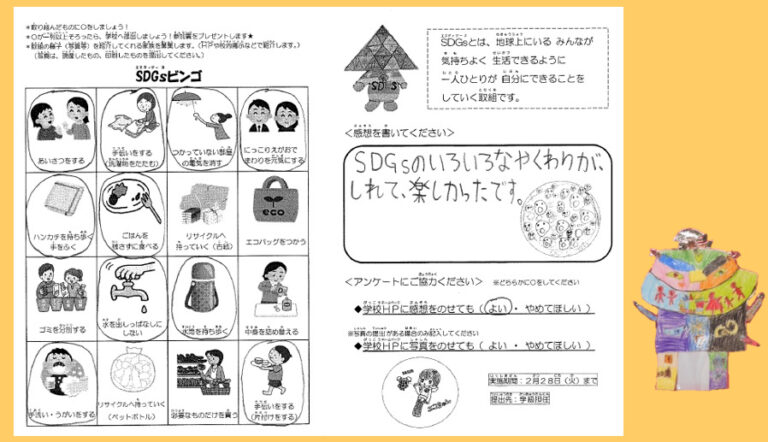 ＊取り組んだものに○をしましょう！
＊○が一列以上そろったら、学校へ提出しましょう！参加賞をプレゼントします★
＊取組の様子（写真等）を紹介してくれる家族を募集します。（HPや校内掲示などで紹介します。）
SDGsビンゴ
あいさつをする
お手伝いをする
（洗濯物をたたむ）
つかっていない部屋
の電気を消す
にっこりえがおで
まわりを元気にする
ハンカチを持ち歩く
手をふく
ごはんを
残さずに食べる
リサイクルへ
持っていく（古紙）
eco
エコバッグをつかう
ゴミを分別する
水を出しっぱなしに
しない
水筒を持ち歩く
中身を詰め替える
手洗い・うがいをする
リサイクルへ持っていく
（ペットボトル）
必要なものだけを買う
お手伝いをする
（片付けをする）
SDGsとは、地球上にいる みんなが
気持ちよく 生活できるように
一人ひとりが 自分にできることを
していく取組です。
＜感想を書いてください＞
SDGsのいろいろなやくわりが、
しれて、楽しかったです。
＜アンケートにご協力ください＞ ※どちらかに○をしてください
◆学校HPに感想をのせても（ よい ・ やめてほしい ）
※写真の提出がある場合のみ記入してください
◆学校HPに写真をのせても（ よい ・ やめてほしい ）
実施期間：2月28日（火）まで
提出先：学級担任